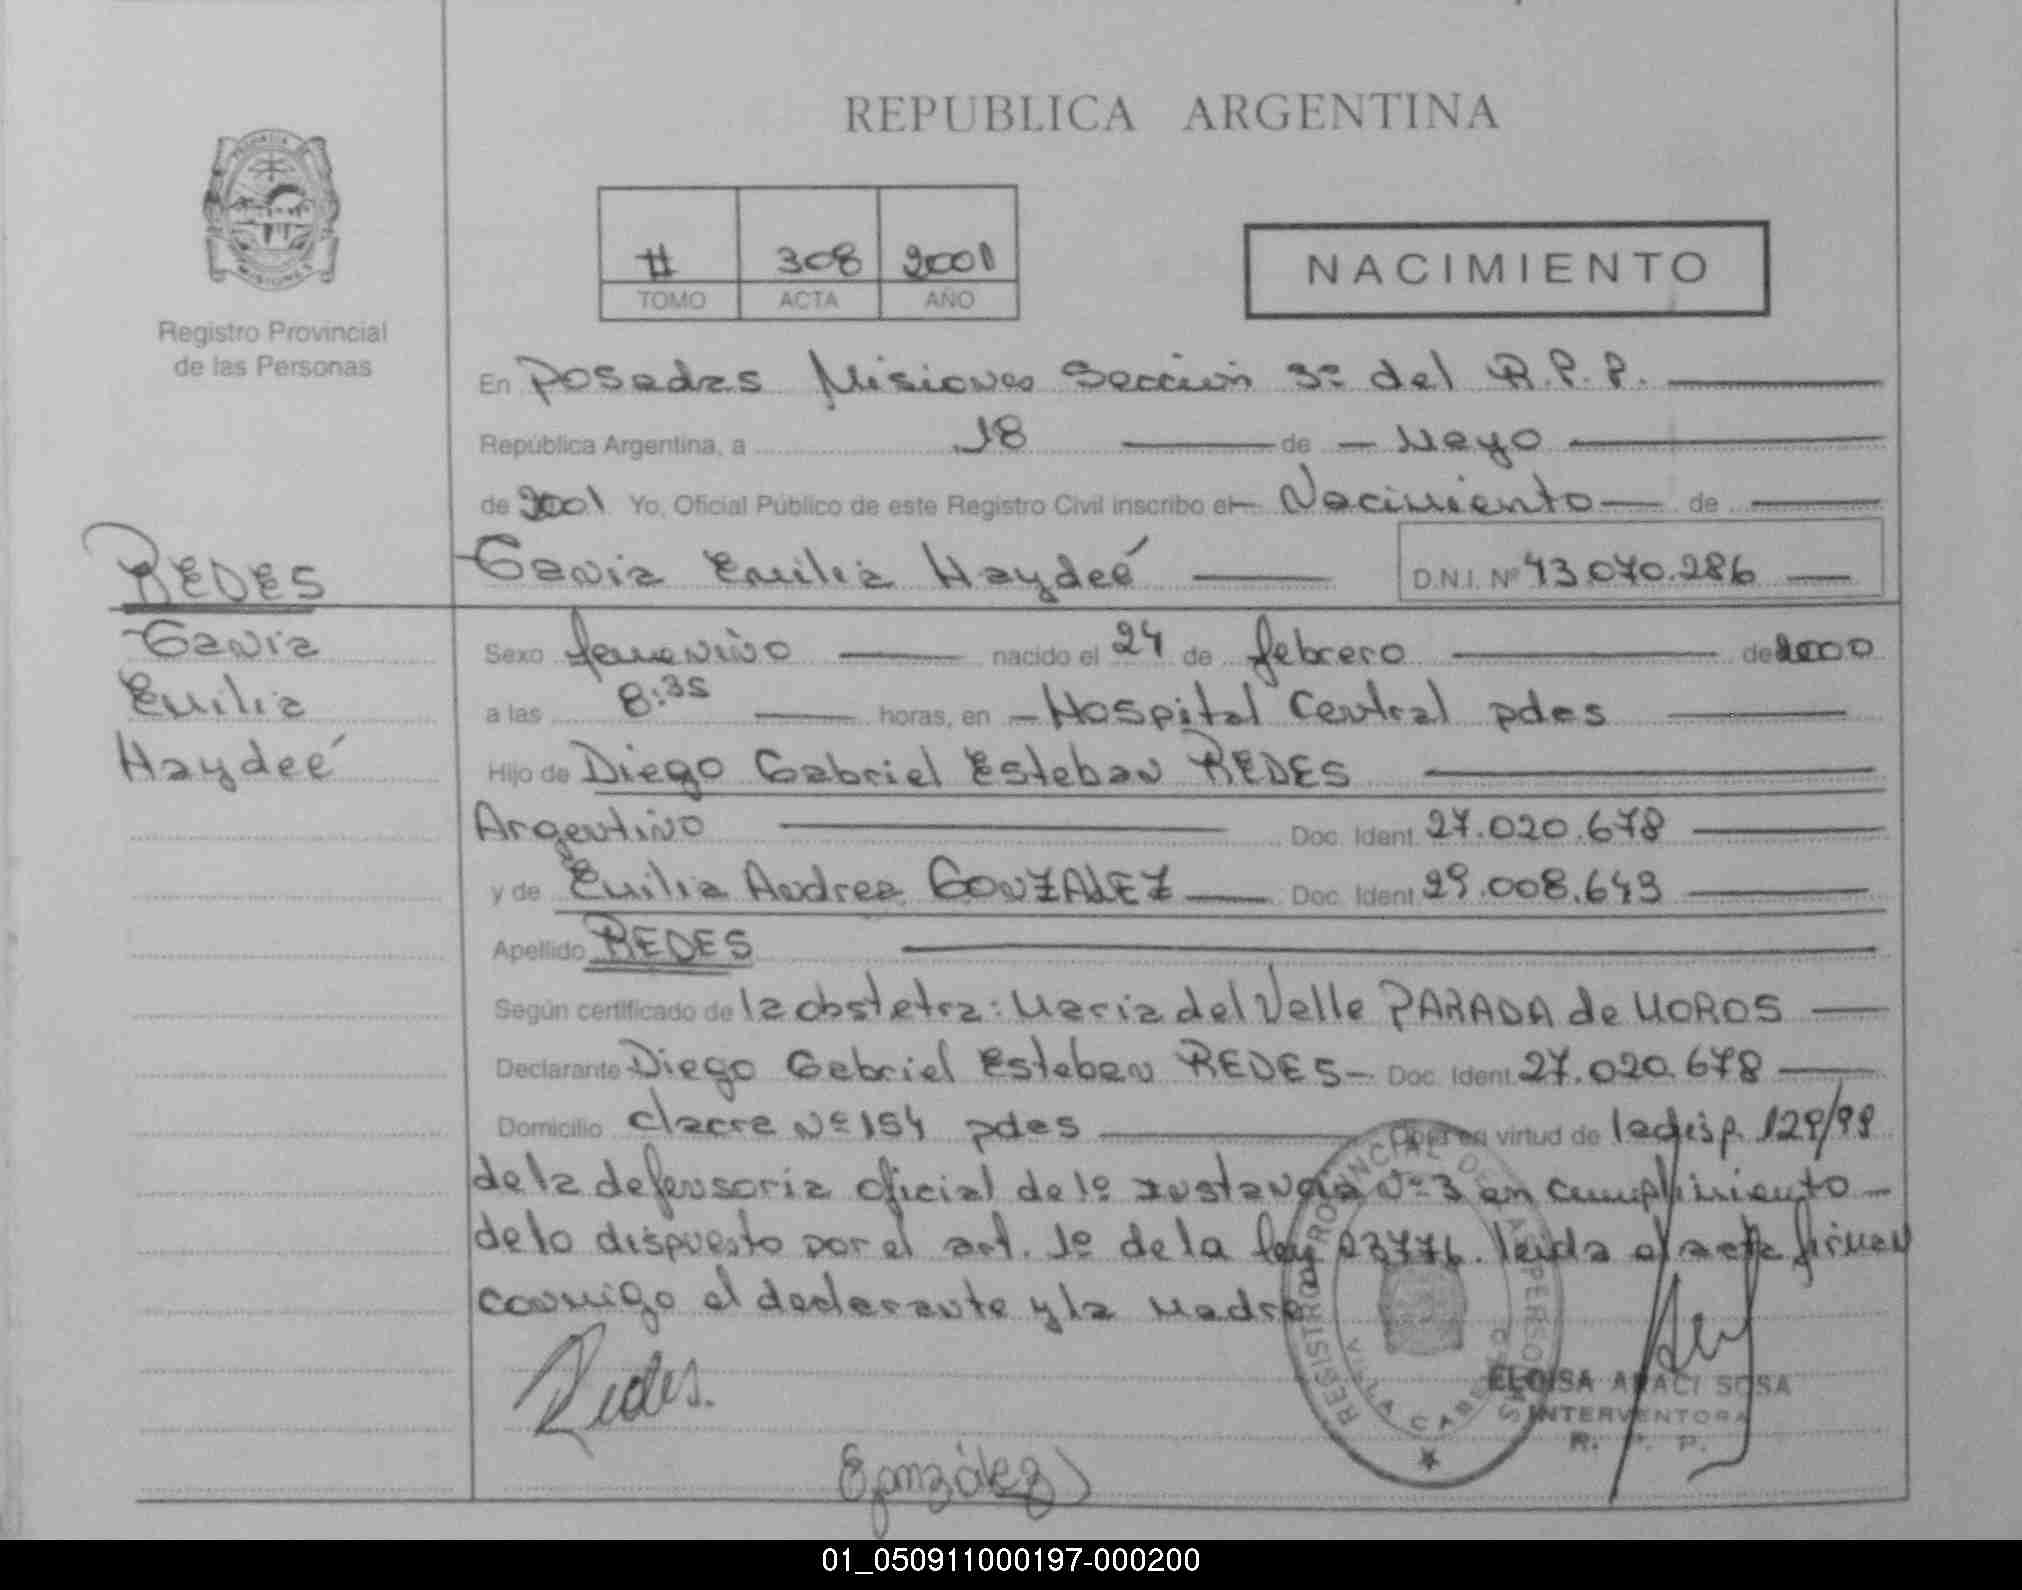 REPUBLICA ARGENTINA
PROVINCIA DE MISIONES
Registro Provincial
de las Personas
# 308 2001
TOMO ACTA AÑO
NACIMIENTO
En Posadas Misiones Sección 3ª del R.P.P.
República Argentina, a 18 de Mayo
de 2001 Yo, Oficial Público de este Registro Civil inscribo el Nacimiento de
Tania Emilia Haydeé D.N.I. Nº 43.070.286
REDES
Tania
Emilia
Haydeé
Sexo femenino nacido el 24 de febrero de 2000
a las 8:35 horas, en Hospital Central pdas
Hijo de Diego Gabriel Esteban REDES
Argentino Doc. Ident. 27.020.678
y de Emilia Andrea GONZALEZ Doc. Ident. 29.008.643
Apellido REDES
Según certificado de la obstetra: Maria del Valle PARADA de MOROS
Declarante Diego Gabriel Esteban REDES Doc. Ident. 27.020.678
Domicilio chacra Nº 154 pdas Obra en virtud de la disp. 129/99
de la defensoria oficial de 1º Instancia Nº 3 en cumplimiento
de lo dispuesto por el art. 1º de la ley 23776. leida el acta firman
conmigo el declarante y la madre
Redes.
EGonzález
REGISTRO PROVINCIAL DE LAS PERSONAS
VILLA CABELLO
ELOISA ARACI SOSA
INTERVENTORA
R. P. P.
01_050911000197-000200